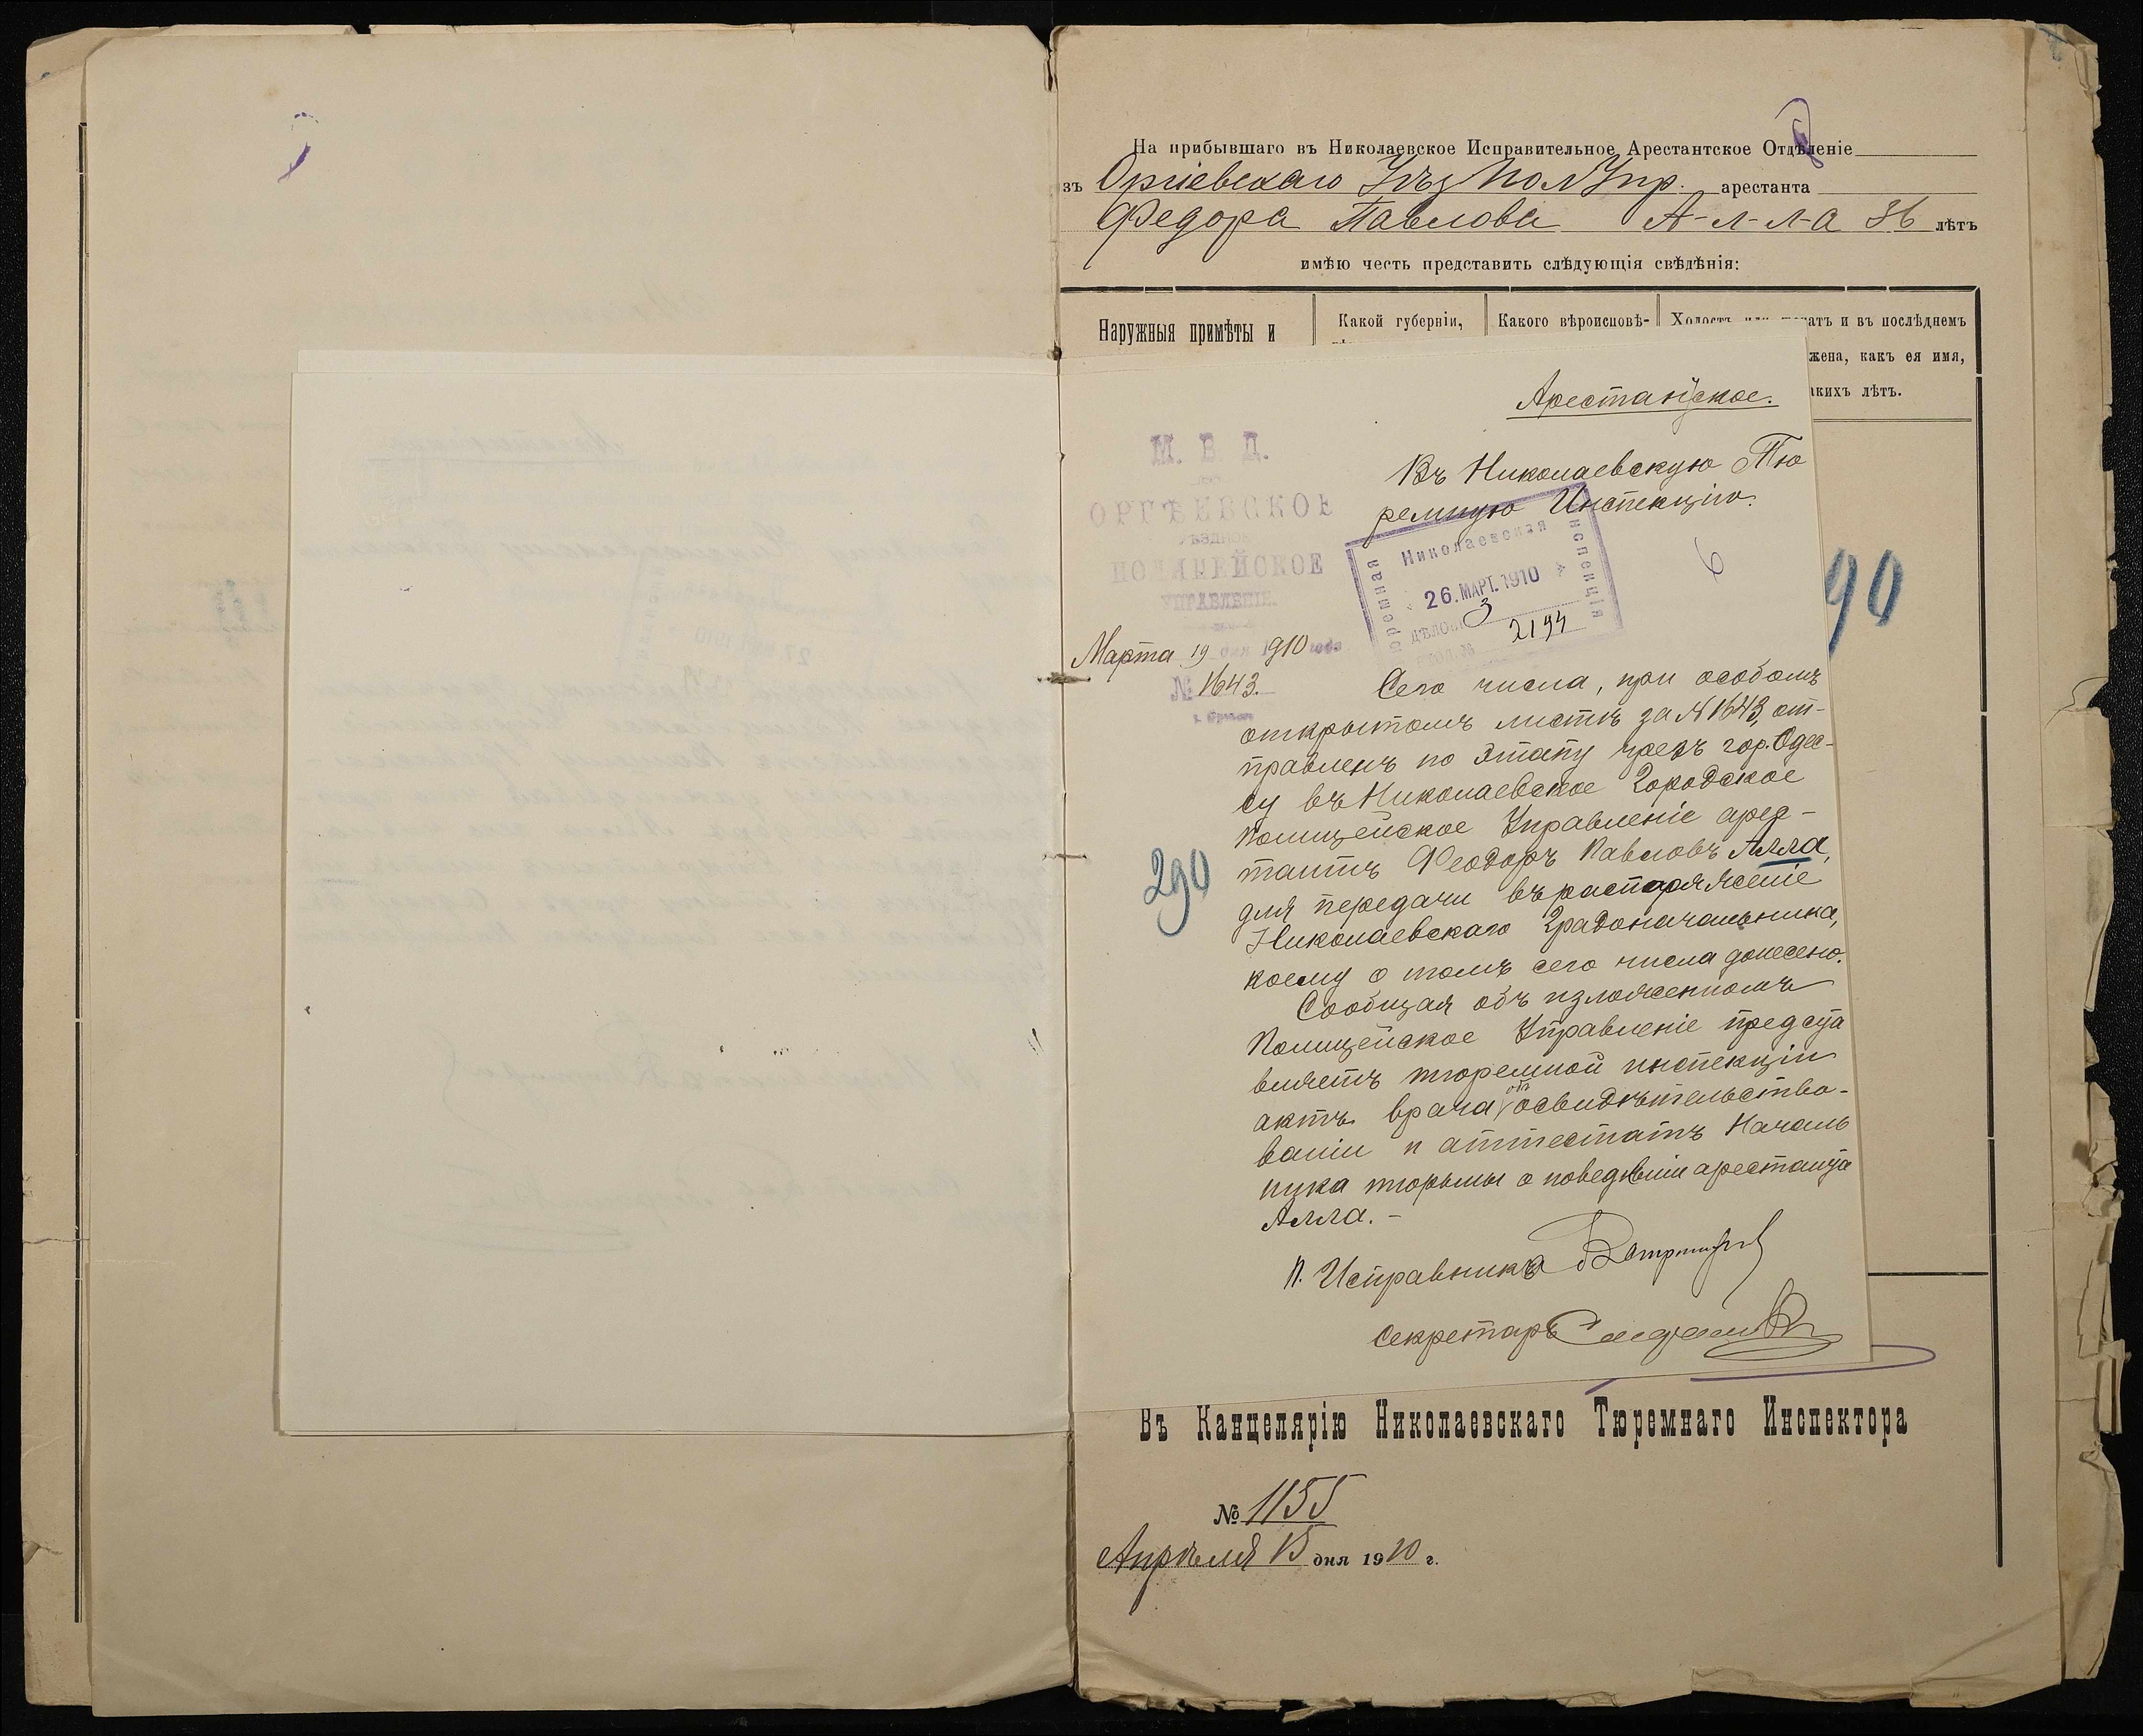 На прибывшаго въ Николаевское Исправительное Арестантское Отдѣленіе
зъ Оргіевскаго Уѣз Пол Упр. арестанта
Федора Павлова А-л-л-а 36 лѣтъ
имѣю честь представить слѣдующія свѣдѣнія:
Наружныя примѣты и
Какой губерніи,
Какого вѣроисповѣ-
Холостъ или женатъ и въ послѣднемъ
жена, какъ ея имя,
акихъ лѣтъ.
Арестантское.
М. В. Д.
ОРГѢЕВСКОЕ
УѢЗДНОЕ
ПОЛИЦЕЙСКОЕ
УПРАВЛЕНІЕ.
Марта 19 дня 1910 года
№ 1643.
Въ Николаевскую Тю
ремную Инспекцію.
Николаевская
Тюремная
Инспекція
26. МАРТ. 1910
ДѢЛО 3
2194
6
90
290
Сего числа, при особомъ
открытомъ листѣ за № 1643, от-
правленъ по этапу чрезъ гор. Одес-
су въ Николаевское Городское
Полицейское Управленіе арес-
тантъ Феодоръ Павловъ Алла,
для передачи въ распоряженіе
Николаевскаго Градоначальника,
коему о томъ сего числа донесено.
Сообщая объ изложенномъ
Полицейское Управленіе предста
вляетъ тюремной инспекціи
актъ врача объ освидѣтельство-
ваніи и аттестатъ Началь
ника тюрьмы о поведеніи арестанта
Алла. -
П. Исправника
Секретарь
Въ Канцелярію Николаевскаго Тюремнаго Инспектора
№ 1155
Апрѣля 15 дня 1910 г.